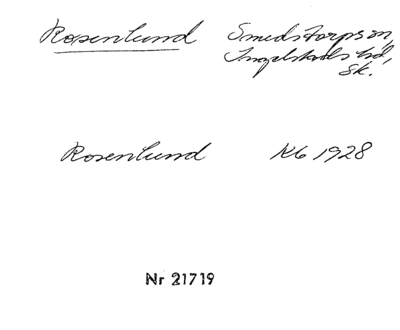 Rosenlund Smedstorps sn,
Ingelstads hd,
Sk.
Rosenlund Kb 1928
Nr 21719